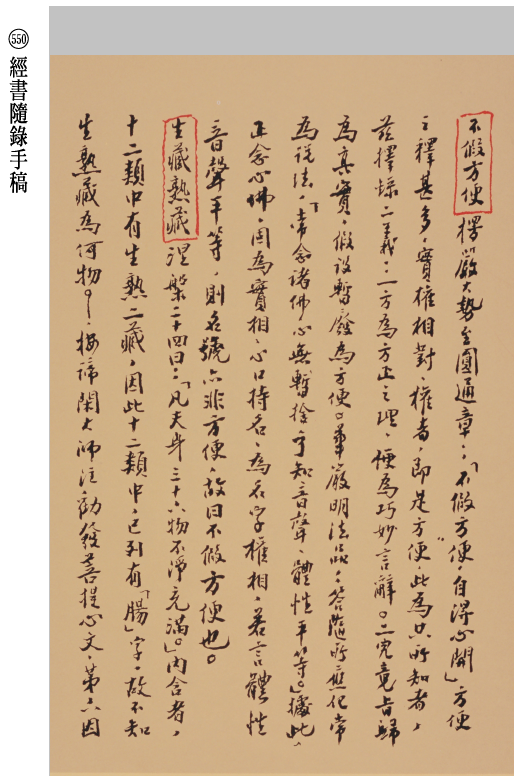 550
經書隨錄手稿
不假方便 楞嚴大勢至圓通章:「不假方便,自得心開」方便
之釋甚多,實權相對,權者,即是方便,此為只所知者,
茲擇錄二義:一方為方正之理,便為巧妙言辭。二究竟旨歸
為真實,假設暫廢為方便。華嚴明法品,答隨所應化常
為說法,「常念諸佛心無暫捨,了知音聲,體性平等。」據此,
正念心佛,因為實相,心口持名,為名字權相,若言體性
音聲平等,則名號亦非方便,故曰不假方便也。
生藏熟藏 涅槃二十四曰:「凡夫身三十六物不淨充滿。」內含者,
十二類中有生熟二藏,因此十二類中,已列有「腸」字,故不知
生熟藏為何物,按諦閑大師注,勸發菩提心文,第六因